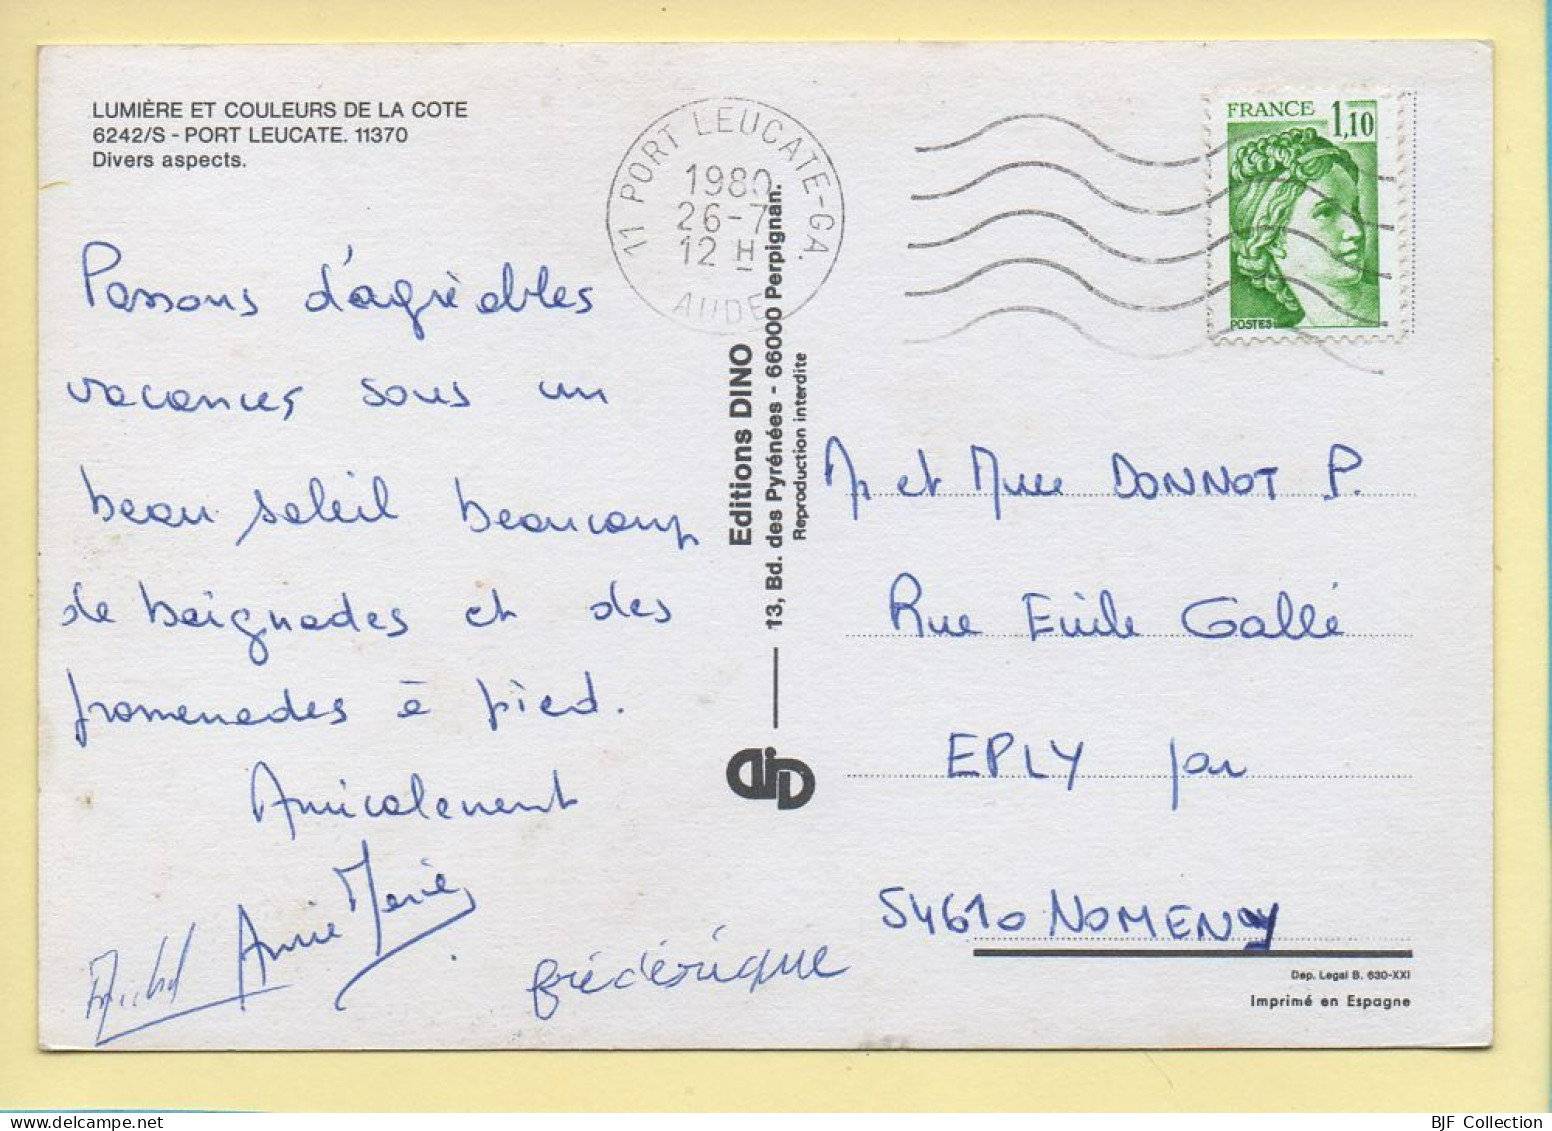 LUMIÈRE ET COULEURS DE LA COTE
6242/S - PORT LEUCATE. 11370
Divers aspects.
11 PORT LEUCATE-GA.
1980
26-7
12 H
AUDE
FRANCE 1,10
POSTES
Passons d'agréables
vacances sous un
beau soleil beaucoup
de baignades et des
promenades à pied.
Amicalement
Michel Annie Marie
frédérique
Editions DINO
13, Bd. des Pyrénées - 66000 Perpignan.
Reproduction interdite
DiD
Mr et Mme DONNOT P.
Rue Emile Gallé
EPLY par
54610 NOMENY
Dep. Legal B. 630-XXI
Imprimé en Espagne
BJF Collection